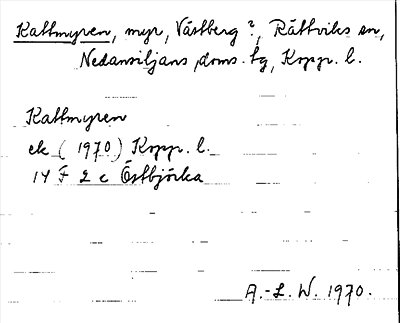 Kattmyren, myr, Västberg?, Rättviks sn,
Nedansiljans doms. tg, Kopp. l.
Kattmyren
ek (1970) Kopp. l.
14 F 2 c Östbjörka
A.-L. W. 1970.